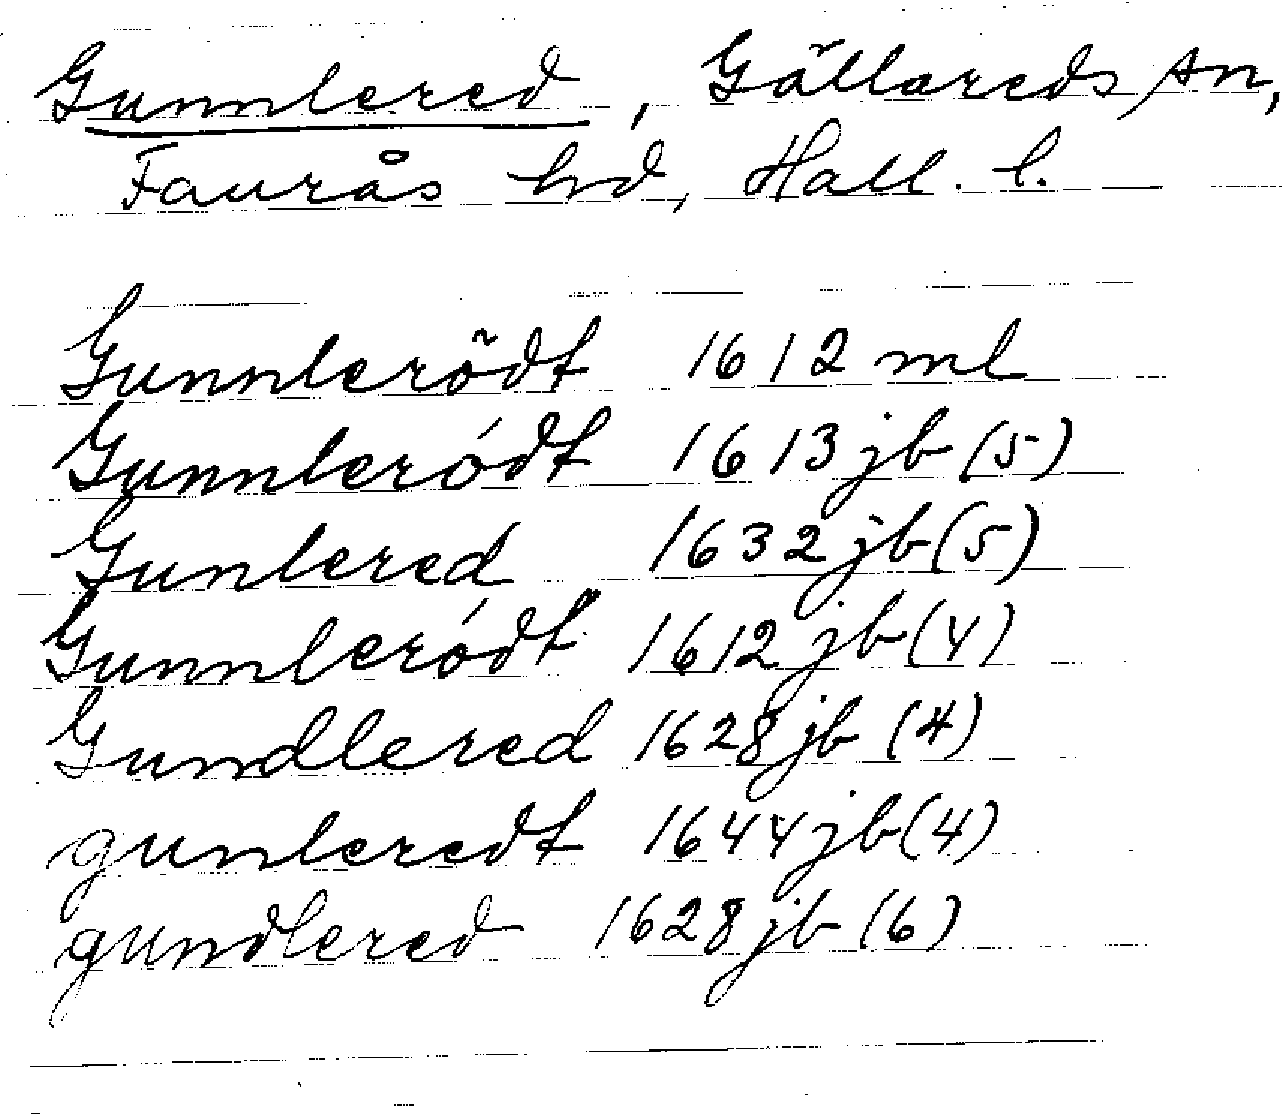 Gunnlered, Gällareds sn,
Faurås hd, Hall. l.
Gunnlerödt 1612 ml
Gunnleródt 1613 jb (5)
Gunlered 1632 jb (5)
Gunnleródt 1612 jb (4)
Gundlered 1628 jb (4)
gunleredt 1644 jb (4)
gundlered 1628 jb (6)